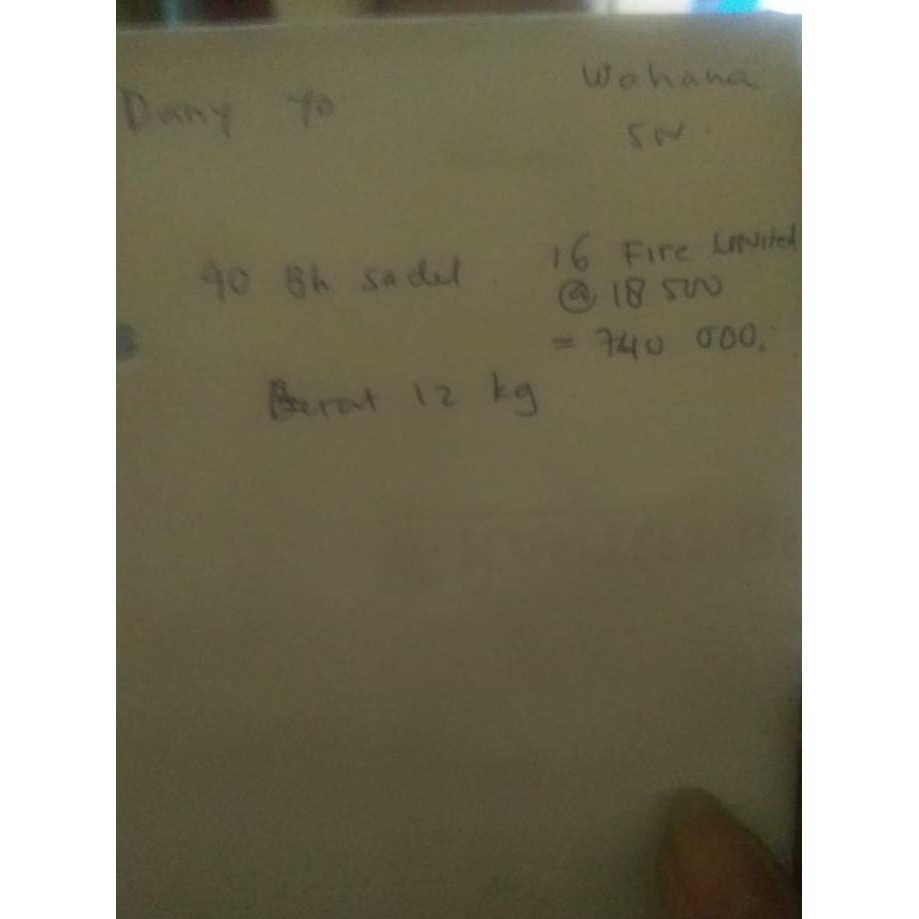 Wahana
Dany Yo
SN.
40 Bh sadel. 16 Fire UNited
@ 18 500
= 740 000.
Berat 12 kg